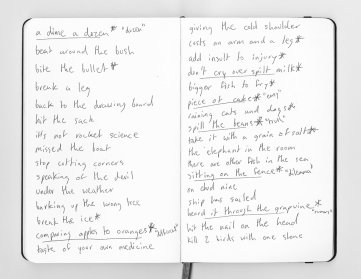 a dime a dozen* "dozen"
beat around the bush
bite the bullet*
break a leg
back to the drawing board
hit the sack
it's not rocket science
missed the boat
stop cutting corners
speaking of the devil
under the weather
barking up the wrong tree
break the ice*
comparing apples to oranges*
taste of your own medicine
giving the cold shoulder
costs an arm and a leg*
add insult to injury*
don't cry over spilt milk*
bigger fish to fry*
piece of cake*
raining cats and dogs*
spill the beans*
take it with a grain of salt*
the elephant in the room
there are other fish in the sea
sitting on the fence*
on cloud nine
ship has sailed
heard it through the grapevine*
hit the nail on the head
kill 2 birds with one stone